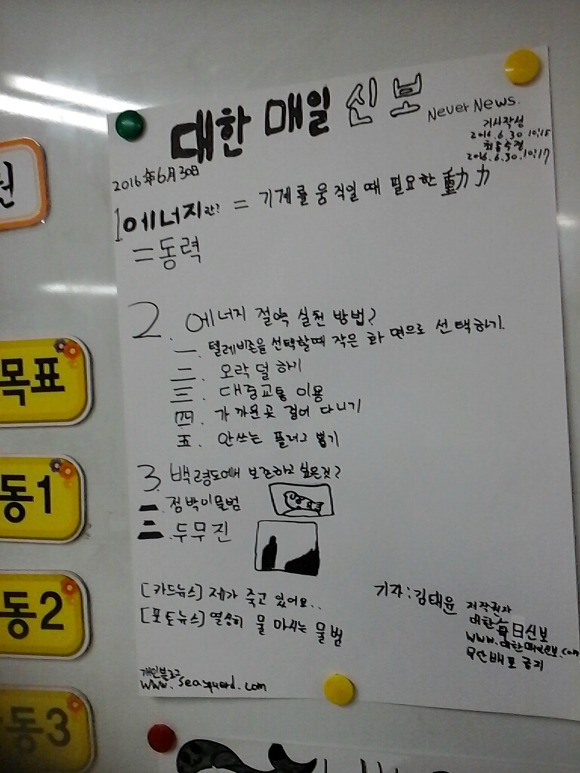 대한 매일 신보 Never News.
기사작성
2016.6.30 10:15
최종수정
2016.6.30.10:17
2016年6月30日
1 에너지란? = 기계를 움직일 때 필요한 動力
= 동력
2. 에너지 절약 실천 방법?
一. 텔레비젼을 선택할때 작은 화면으로 선택하기.
二. 오락 덜 하기
三. 대중교통 이용
四. 가까운곳 걸어 다니기
五. 안쓰는 플러그 뽑기
3. 백령도에서 보존하고 싶은것?
一. 점박이물범
二. 두무진
[카드뉴스] 제가 죽고 있어요..
[포토뉴스] 열심히 물 마시는 물범
기자:김태윤
저작권자
대한每日신보
www.대한매일신보.com
무단배포 금지
개인블로그
www.seaguard.com
원
목표
동1
동2
동3